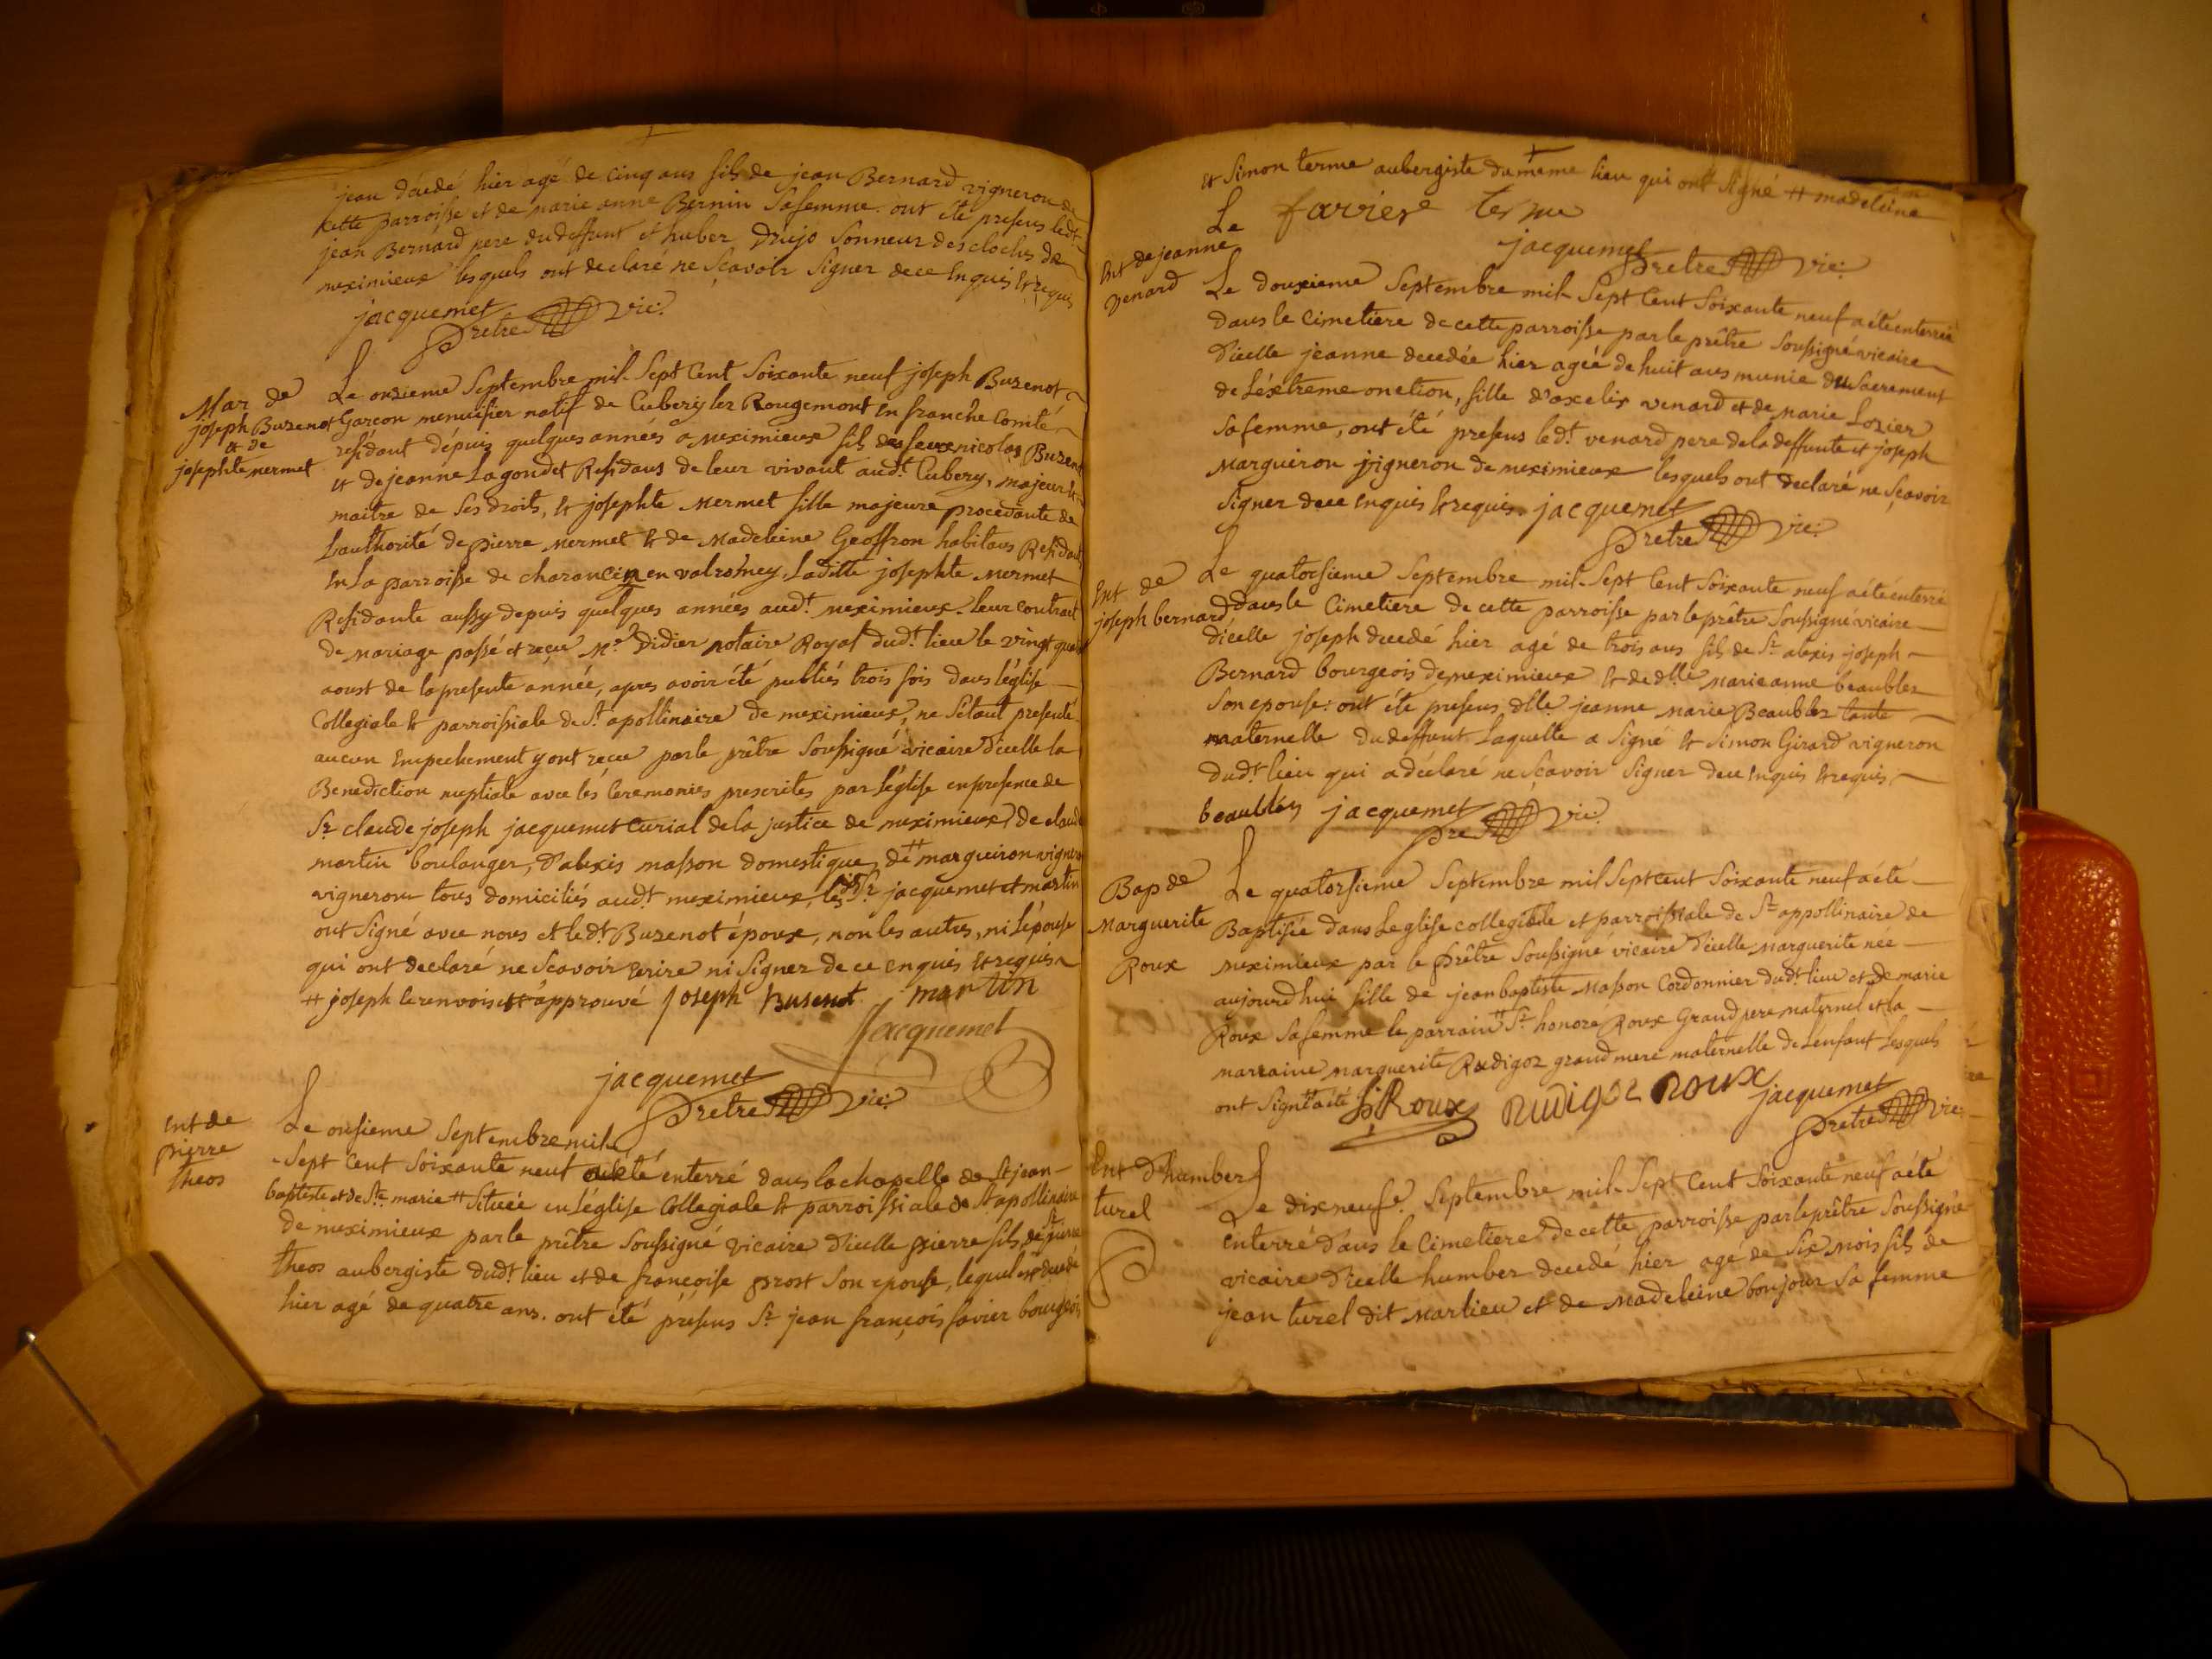 jean décedé hier agé de cinq ans fils de jean Bernard vigneron de
cette parroisse et de marie anne Bernin sa femme. ont été presens ledt.
jean Bernard pere du deffunt et huber Drujo sonneur des cloches de
meximieux lesquels ont declaré ne sçavoir signer de ce enquis et requis
jacquemet
pretre vic:
Mar de
joseph Buzenot
et de
josephte mermet
Le onzieme septembre mil sept cent soixante neuf joseph Buzenot
Garçon menuisier natif de Cubery lez Rougemont en franche Comté
residant dépuis quelques années a meximieux fils des feux nicolas Buzenot
et de jeanne Lagoudet Residans de leur vivant audt. Cubery, majeur et
maitre de ses droits, et josephte mermet fille majeure procedante de
L'authorité de pierre mermet et de Madeleine Geoffron habitans Residans
en la parroisse de charancin en valromey, Laditte josephte mermet
Residante aussy depuis quelques années audt. meximieux. leur contract
de mariage passé et reçu Me. Didier notaire Royal dudt. lieu le vingt
aoust de la presente année, apres avoir été publiés trois fois dans l'église
Collegiale et parroissiale de St. apollinaire de meximieux, ne s'étant presenté
aucun empechement y ont reçu par le prêtre soussigné vicaire d'icelle la
Benediction nuptiale avec les ceremonies prescrites par l'église en presence de
Sr. claude joseph jacquemet curial de la justice de meximieux, de claude
martin boulanger, d'alexis masson domestique, de # margueiron vigneron
vigneron tous domiciliés audt. meximieux, les Srs. jacquemet et martin
ont signé avec nous et ledt. Buzenot époux, non les autres, ni l'épouse
qui ont declaré ne scavoir ecrire ni signer de ce enquis et requis
# joseph le renvois approuvé joseph Busenot martin
Jacquemet
jacquemet
pretre vic:
Ent de
pierre
theos
Le onsieme septembre mil
sept cent soixante neuf a été enterré dans la chapelle de St. jean
baptiste et de Ste. marie # située en l'église Collegiale et parroissiale de St. apollinaire
de meximieux par le prêtre soussigné vicaire d'icelle pierre fils de Sr. pierre
theos aubergiste dudt. lieu et de françoise prost son epouse, lequel est decedé
hier agé de quatre ans. ont été présens Sr. jean françois favier bourgeois
et simon terme aubergiste du même lieu qui ont signé # madeleine
Le favier terme
jacquemet
pretre vic:
Ent de jeanne
venard
Le douxieme septembre mil sept cent soixante neuf a été enterrée
dans le cimetiere de cette parroisse par le prêtre soussigné vicaire
d'icelle jeanne decedée hier agée de huit ans munie du sacrement
de l'éxtreme onction, fille d'axelix venard et de marie Lozier
sa femme, ont été presens ledt. venard pere de la deffunte et joseph
Margueiron vigneron de meximieux lesquels ont declaré ne sçavoir
signer de ce enquis et requis. jacquemet
pretre vic:
Ent de
joseph bernard
Le quatorsieme septembre mil sept cent soixante neuf a été enterré
dans le cimetiere de cette parroisse par le prêtre soussigné vicaire
d'icelle joseph decedé hier agé de trois ans fils de Sr. alexis joseph
Bernard bourgeois de meximieux et de dlle. marie anne beaublez
son epouse: ont été presens dlle. jeanne marie Beaublez tante
maternelle du deffunt laquelle a signé et simon Girard vigneron
dudt. lieu qui a déclaré ne sçavoir signer de ce enquis et requis
beaubléz jacquemet
pre vic:
Bap de
Marguerite
Roux
Le quatorsieme septembre mil sept cent soixante neuf a été
Baptisée dans l'eglise collegiale et parroissiale de St. appollinaire de
meximieux par le prêtre soussigné vicaire d'icelle marguerite née
aujourd'hui fille de jean baptiste masson cordonnier dudt. lieu et de marie
Roux sa femme le parrain # Sr. honoré Roux Grand pere maternel et la
marraine marguerite Rudigoz grand mere maternelle de l'enfant lesquels
ont signé # a été h Roux Rudigoz Roux jacquemet
prêtre vic:
Ent d'humber
turel
Le dixneufe. septembre mil sept cent soixante neuf a été
enterré dans le cimetiere de cette parroisse par le prêtre soussigné
vicaire d'icelle humber decedé hier agé de six mois fils de
jean turel dit marlieu et de madeleine boujour sa femme